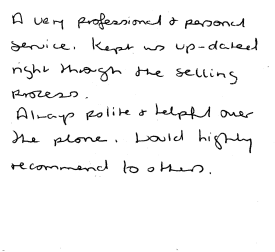 A very professional & personal
service. Kept us up-dated
right through the selling
process.
Always polite & helpful over
the phone. Would highly
recommend to others.